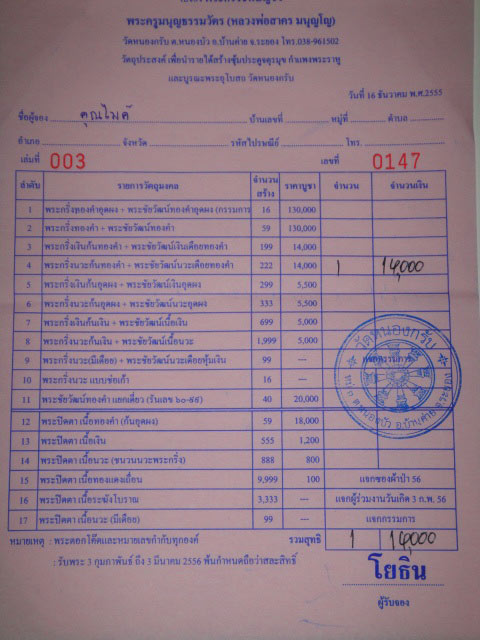 พระครูมนูญธรรมวัตร (หลวงพ่อสาคร มนุญโญ)
วัดหนองกรับ ต.หนองบัว อ.บ้านค่าย จ.ระยอง โทร.038-961502
วัตถุประสงค์ เพื่อนำรายได้สร้างซุ้มประตูจตุรมุข กำแพงพระราหู
และบูรณะพระอุโบสถ วัดหนองกรับ
วันที่ 16 ธันวาคม พ.ศ.2555
ชื่อผู้จอง คุณไมค์ บ้านเลขที่ หมู่ที่ ตำบล
อำเภอ จังหวัด รหัสไปรษณีย์ โทร.
เล่มที่ 003 เลขที่ 0147
ลำดับ รายการวัตถุมงคล จำนวนสร้าง ราคาบูชา จำนวน จำนวนเงิน
1 พระกริ่งทองคำอุดผง + พระชัยวัฒน์ทองคำอุดผง (กรรมการ 16 130,000
2 พระกริ่งทองคำ + พระชัยวัฒน์ทองคำ 59 130,000
3 พระกริ่งเงินก้นทองคำ + พระชัยวัฒน์เงินเดือยทองคำ 199 14,000
4 พระกริ่งนวะก้นทองคำ + พระชัยวัฒน์นวะเดือยทองคำ 222 14,000 1 14,000
5 พระกริ่งเงินก้นอุดผง + พระชัยวัฒน์เงินอุดผง 299 5,500
6 พระกริ่งนวะก้นอุดผง + พระชัยวัฒน์นวะอุดผง 333 5,500
7 พระกริ่งเงินก้นเงิน + พระชัยวัฒน์เนื้อเงิน 699 5,000
8 พระกริ่งนวะก้นเงิน + พระชัยวัฒน์เนื้อนวะ 1,999 5,000
9 พระกริ่งนวะ(มีเดือย) + พระชัยวัฒน์นวะเดือยหุ้มเงิน 99 --- แจกกรรมการ
10 พระกริ่งนวะ แบบช่อเก้า 16 ---
11 พระชัยวัฒน์ทองคำ แยกเดี่ยว (รันเลข ๖๐-๙๙) 40 20,000
12 พระปิดตา เนื้อทองคำ (ก้นอุดผง) 59 18,000
13 พระปิดตา เนื้อเงิน 555 1,200
14 พระปิดตา เนื้อนวะ (ชนวนนวะพระกริ่ง) 888 800
15 พระปิดตา เนื้อทองแดงเถื่อน 9,999 100 แจกซองผ้าป่า 56
16 พระปิดตา เนื้อระฆังโบราณ 3,333 --- แจกผู้ร่วมงานวันเกิด 3 ก.พ, 56
17 พระปิดตา เนื้อนวะ (มีเดือย) 99 --- แจกกรรมการ
หมายเหตุ : พระตอกโค๊ตและหมายเลขกำกับทุกองค์ รวมสุทธิ 1 14,000
: รับพระ 3 กุมภาพันธ์ ถึง 3 มีนาคม 2556 พ้นกำหนดถือว่าสละสิทธิ์
โยธิน
ผู้รับจอง
วัดหนองกรับ
ต.หนองบัว อ.บ้านค่าย